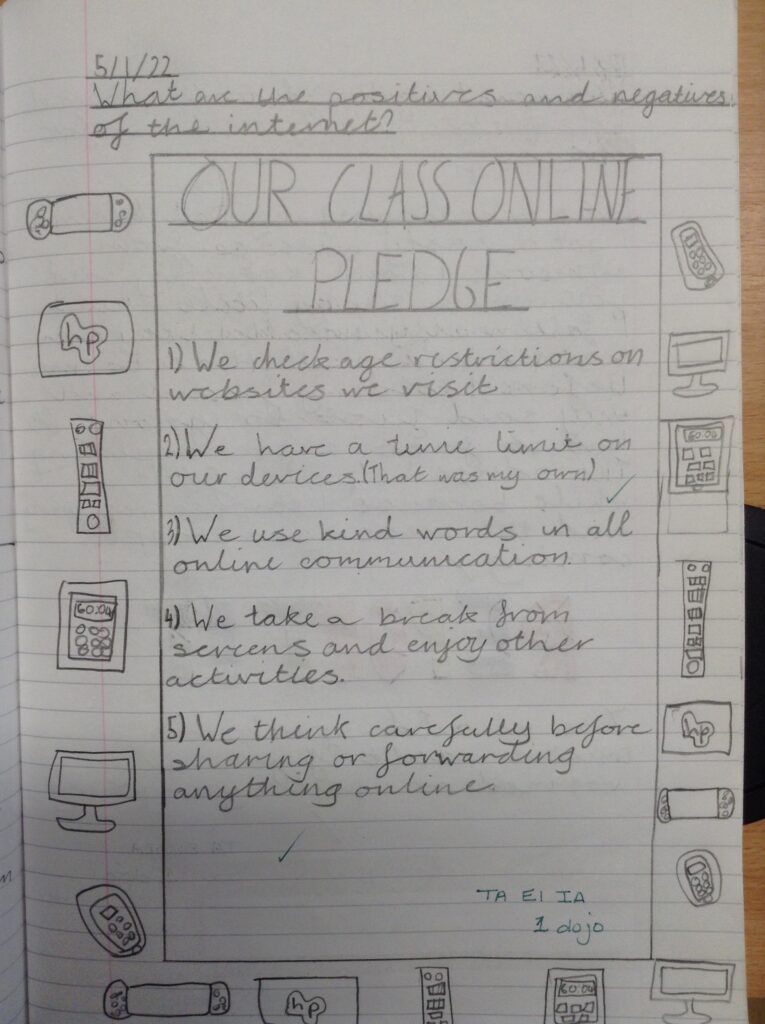 5/1/22
What are the positives and negatives
of the internet?
OUR CLASS ONLINE
PLEDGE
1) We check age restrictions on
websites we visit
2) We have a time limit on
our devices.(That was my own)
3) We use kind words in all
online communication.
4) We take a break from
screens and enjoy other
activities.
5) We think carefully before
sharing or forwarding
anything online.
TA EI IA
1 dojo
hp
60:00
hp
hp
60:00